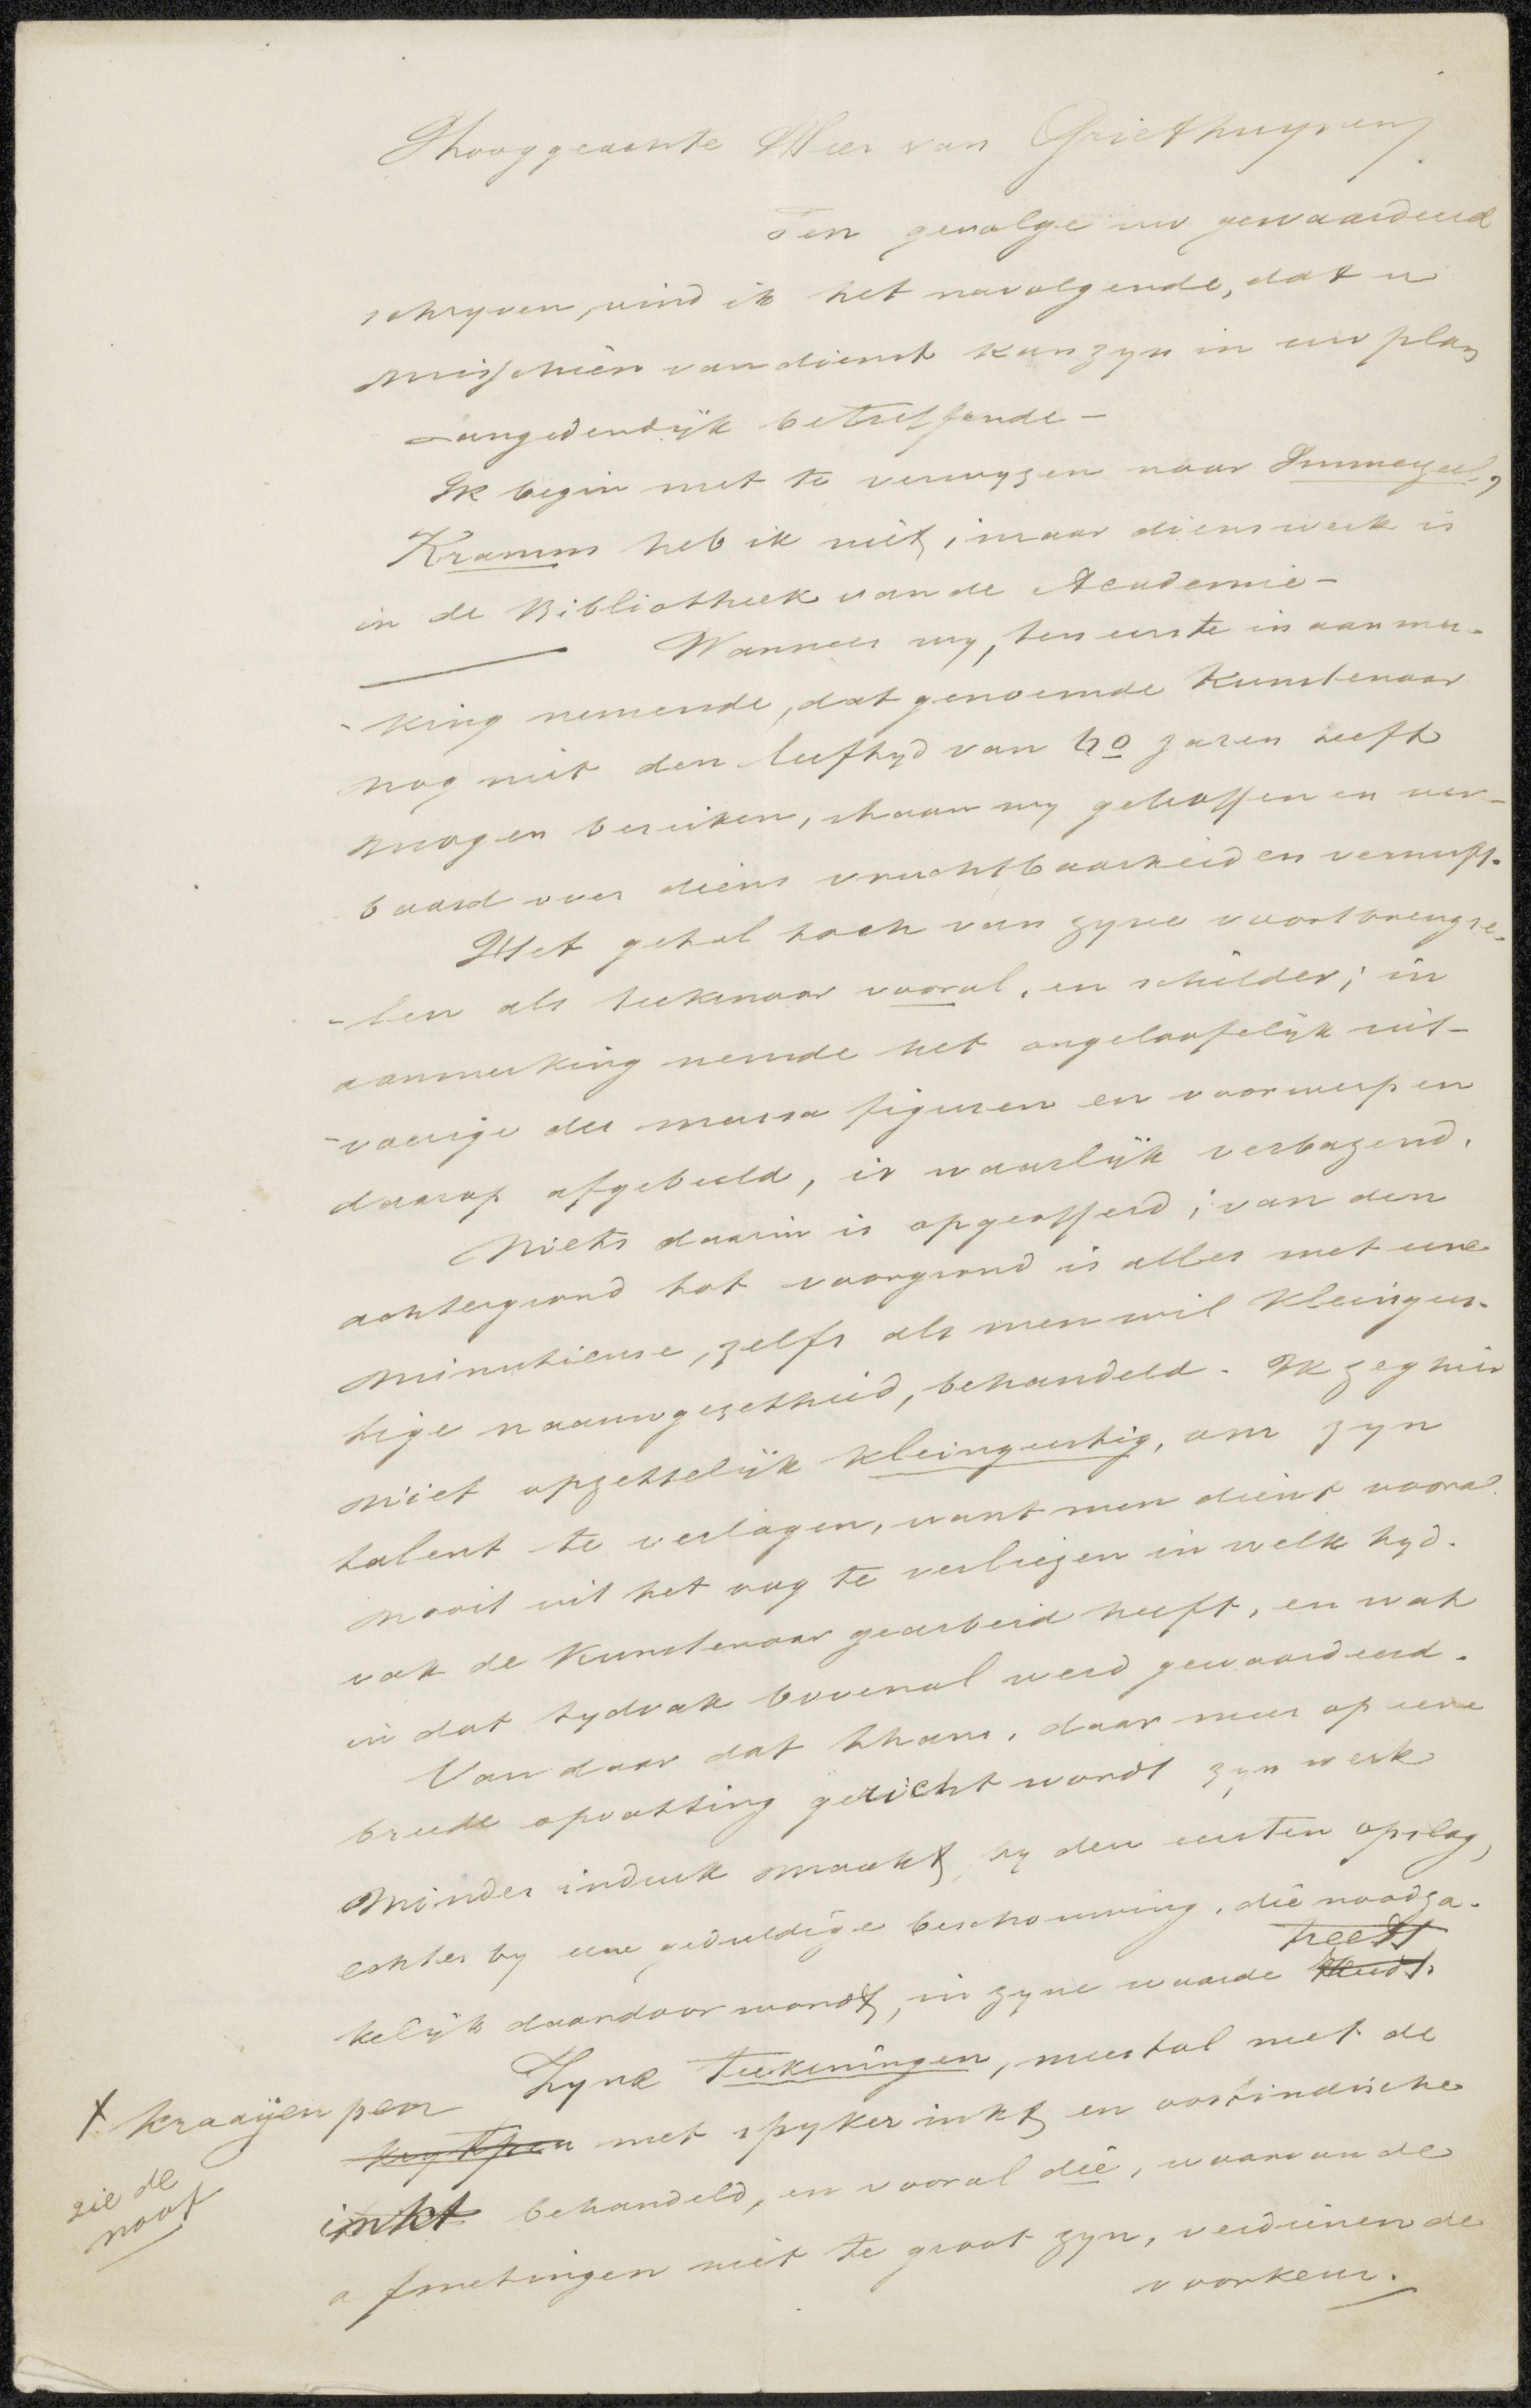 Hooggeachte Heer van Griethuyzen
Ten gevolge uw gewaardeerd
schryven, vind ik het navolgende, dat u
misschien van dienst kan zyn in uw plan
Langendendyk betreffende –
Ik begin met te verwyzen naar Immerzeel,
Kramm heb ik niet, maar diens werk is
in de Bibliotheek van de Academie –
Wanneer wy, ten eerste in aanmer-
-king nemende, dat genoemde Kunstenaar
nog niet den leeftyd van 60 jaren heeft
mogen bereiken, staan wy getroffen en ver-
baasd over diens vruchtbaarheid en vernuft.
Het getal toch van zyne voortbrengse-
-len als teekenaar vooral, en schilder; in
aanmerking nemende het ongelooflyk uit-
-voerige der massa figuren en voorwerpen
daarop afgebeeld, is waarlyk verbazend.
Niets daarin is opgeofferd; van den
achtergrond tot voorgrond is alles met eene
minutieuse, zelfs als men wil kleingees-
tige naauwgezetheid, behandeld. Ik zeg hier
niet opzettelyk kleingeestig, om zyn
talent te verlagen, want men dient vooral
nooit uit het oog te verliezen in welk tyd-
vak de Kunstenaar gearbeid heeft, en wat
in dat tydvak bovenal werd gewaardeerd.
Van daar dat thans, daar meer op eene
breede opvatting gericht wordt zyn werk
minder indruk maakt by den eersten opslag,
echter by eene geduldige beschouwing, die noodza-
heeft
kelyk daardoor wordt, in zyne waarde
Zyne Teekeningen, meestal met de
x kraaijenpen
krytpen met spyker inkt en oostindische
zie de
noot
inkt behandeld, en vooral die, waarvan de
afmetingen niet te groot zyn, verdienen de
voorkeur.